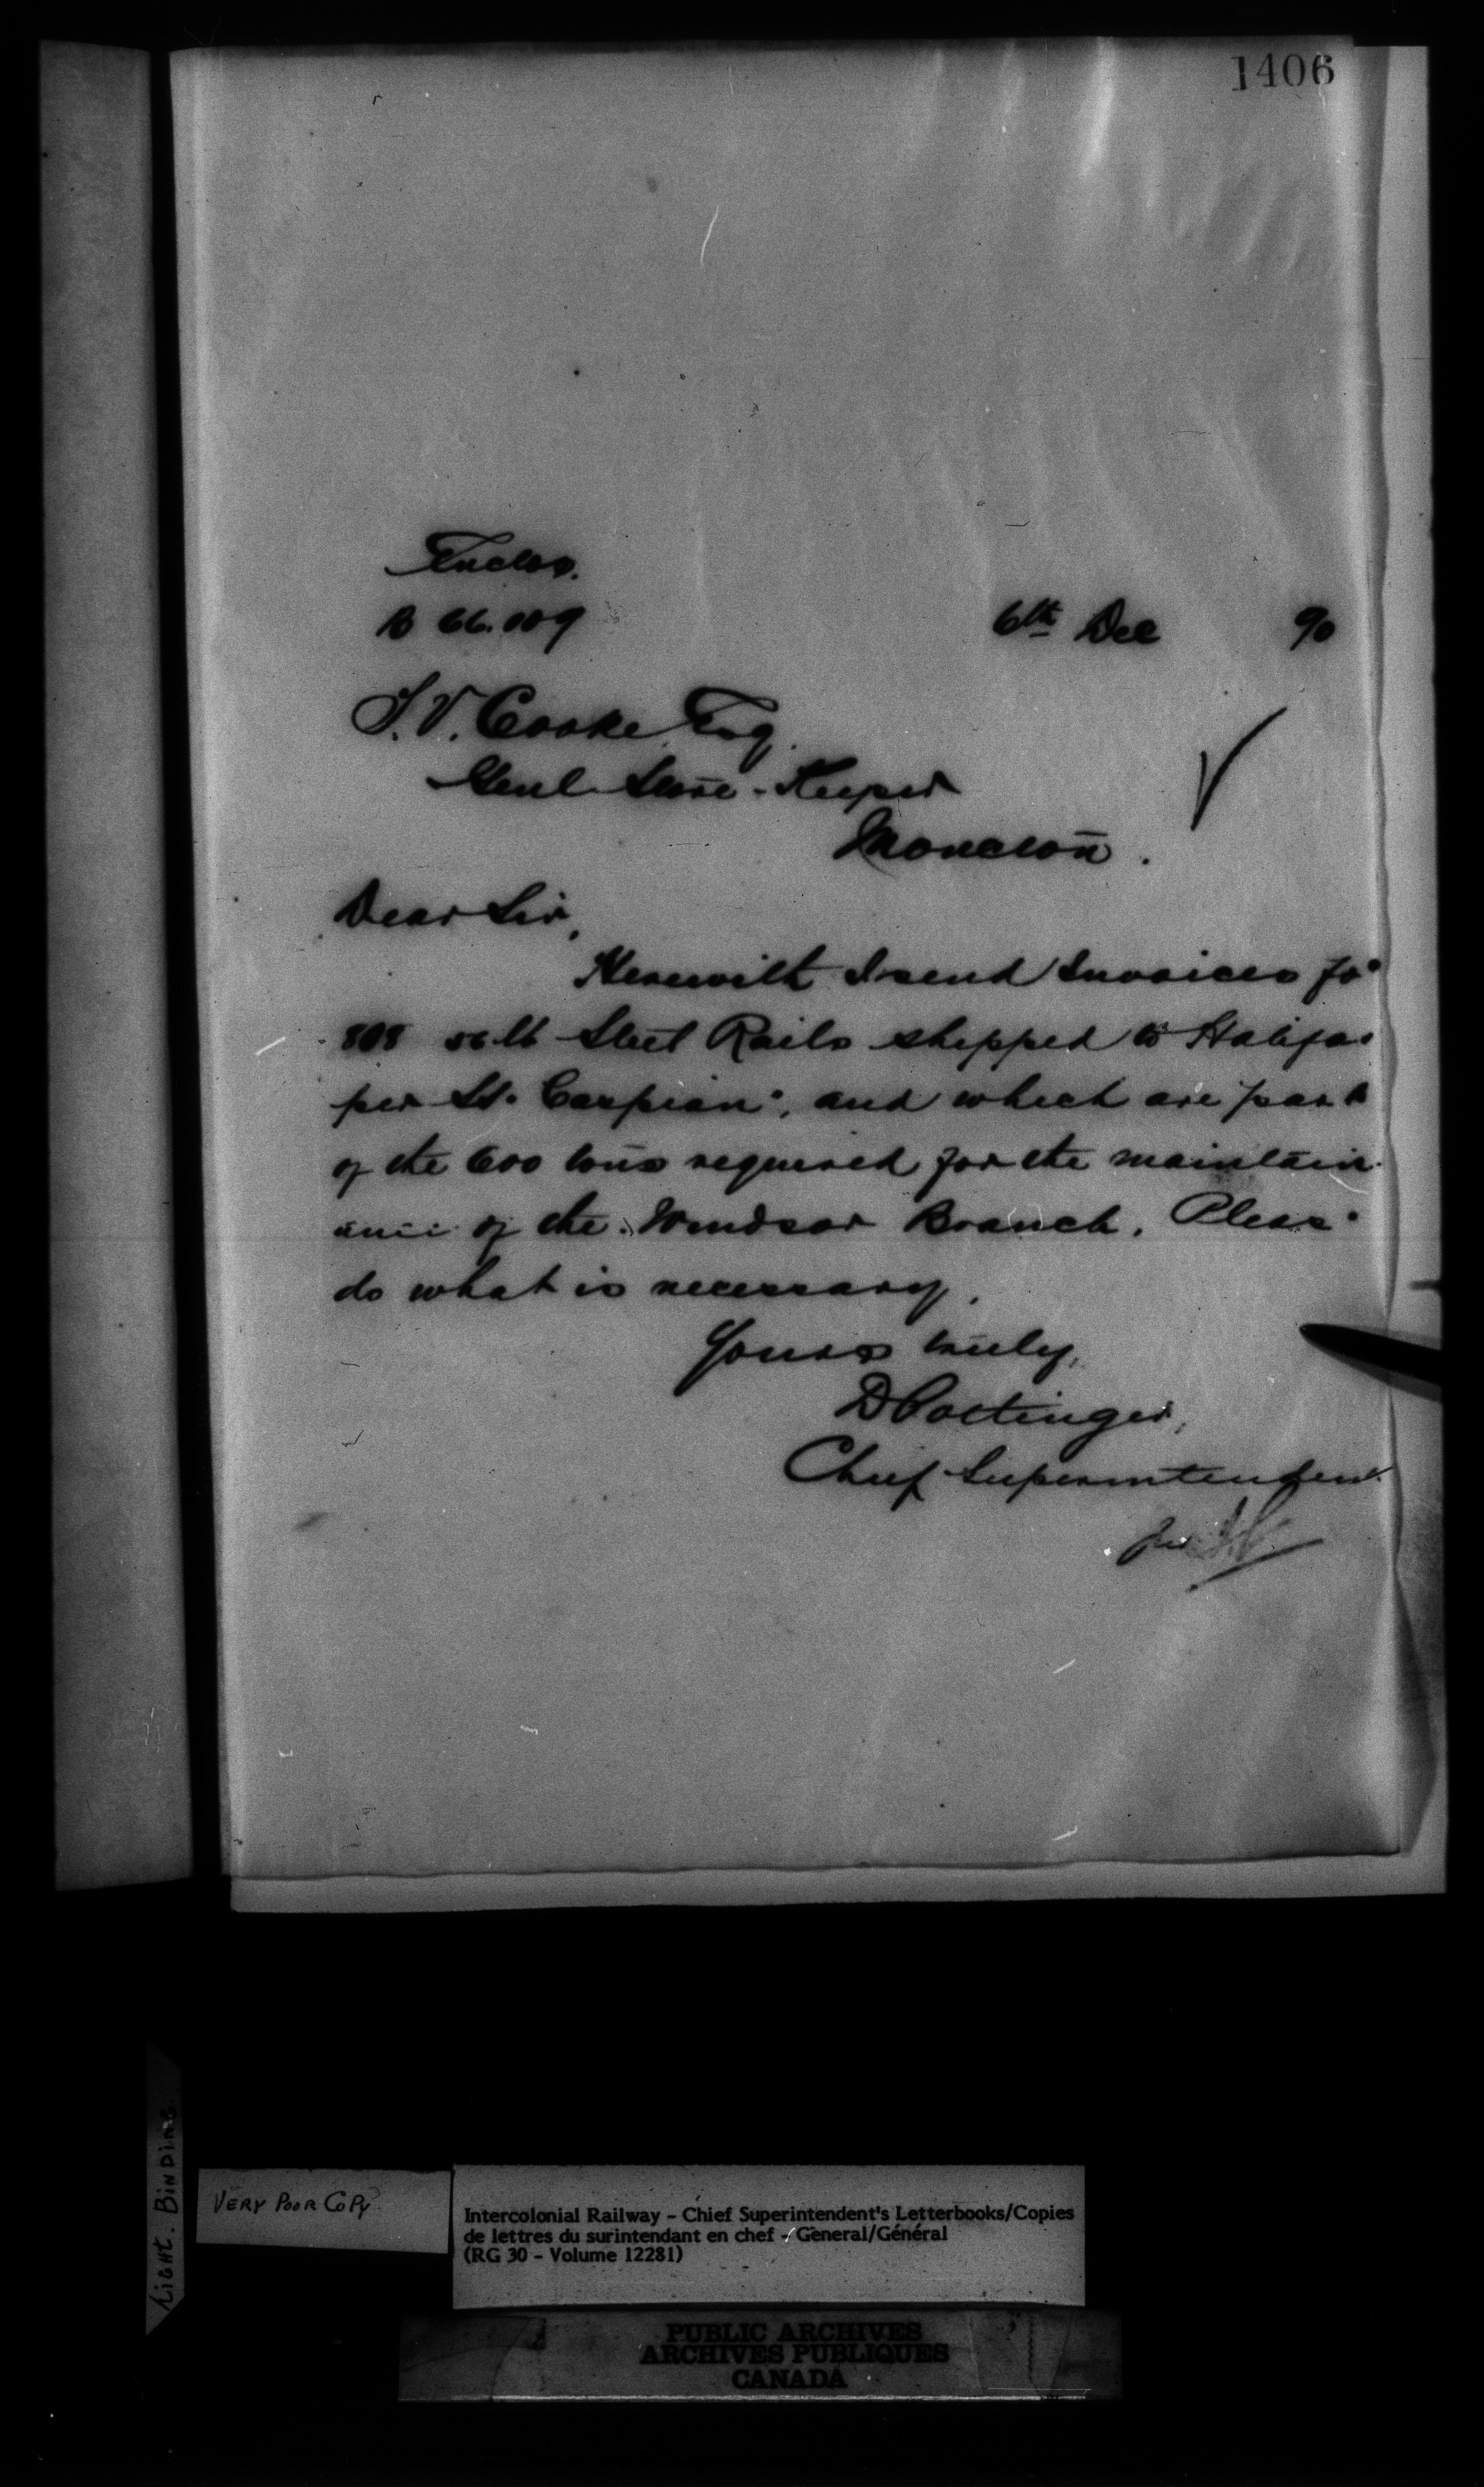 1406
Enclos.
B 66.109
6th Dec 90
T. V. Cooke Esq
Genl Store-Keeper
Moncton.
Dear Sir,
Herewith I send Invoices for
808 56 lb Steel Rails shipped to Halifax
per St. Caspian", and which are part
of the 600 tons required for the maintain-
ance of the Windsor Branch. Please
do what is necessary.
Yours truly,
D Pottinger,
Chief Superintendent
per
LIGHT. BINDING
VERY POOR COPY
Intercolonial Railway – Chief Superintendent's Letterbooks/Copies
de lettres du surintendant en chef – General/Général
(RG 30 – Volume 12281)
PUBLIC ARCHIVES
ARCHIVES PUBLIQUES
CANADA